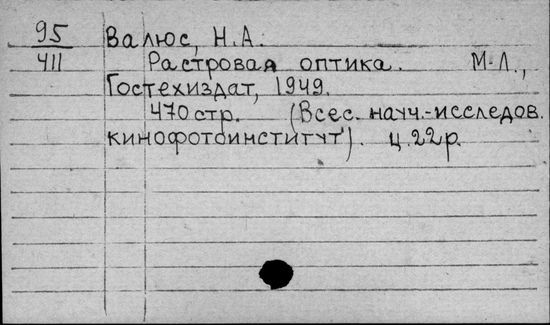 95 Валюс, Н.А.
411 Растровая оптика. М-Л.,
Гостехиздат, 1949.
470 стр. (Всес. науч.-исследов.
кинофотоинститут). ц. 22 р.